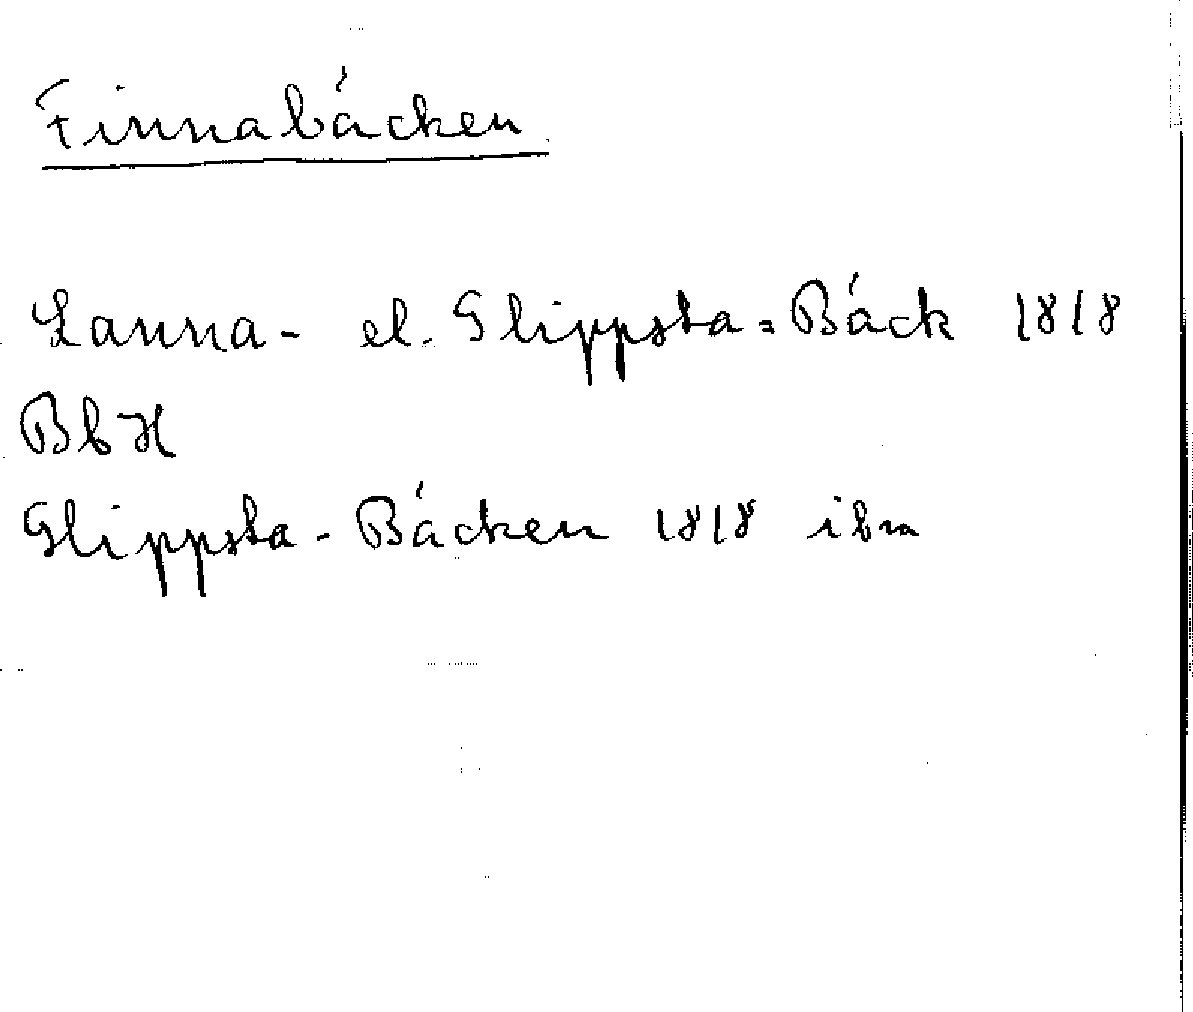 Finnabäcken
Lanna- el. Glippsta=Bäck 1818
BbH
Glippsta-Bäcken 1818 ibm